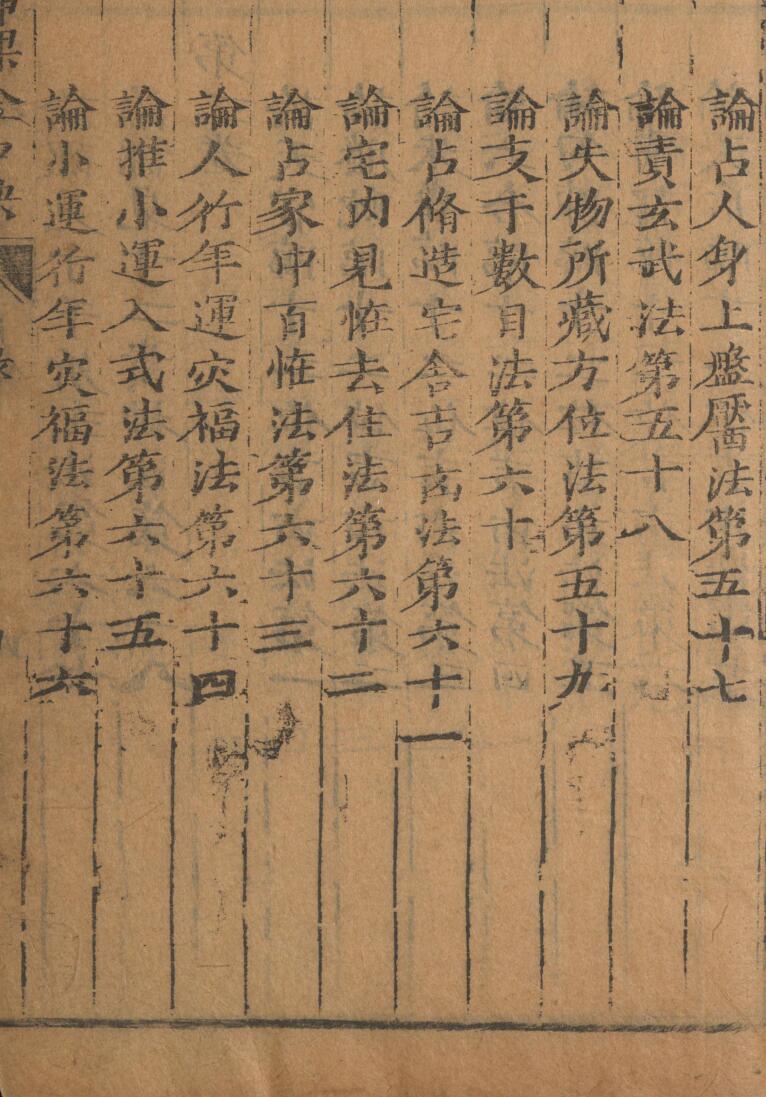 論占人身上法第五十七
論責玄武法第五十八
論失物所藏方位法第五十九
論支干數目法第六十
論占脩造宅舍吉㐫法第六十一
論宅内見恠去住法第六十二
論占家中百恠法第六十三
論人行年運灾福法第六十四
論推小運入式法第六十五
論小運行年灾福法第六十六